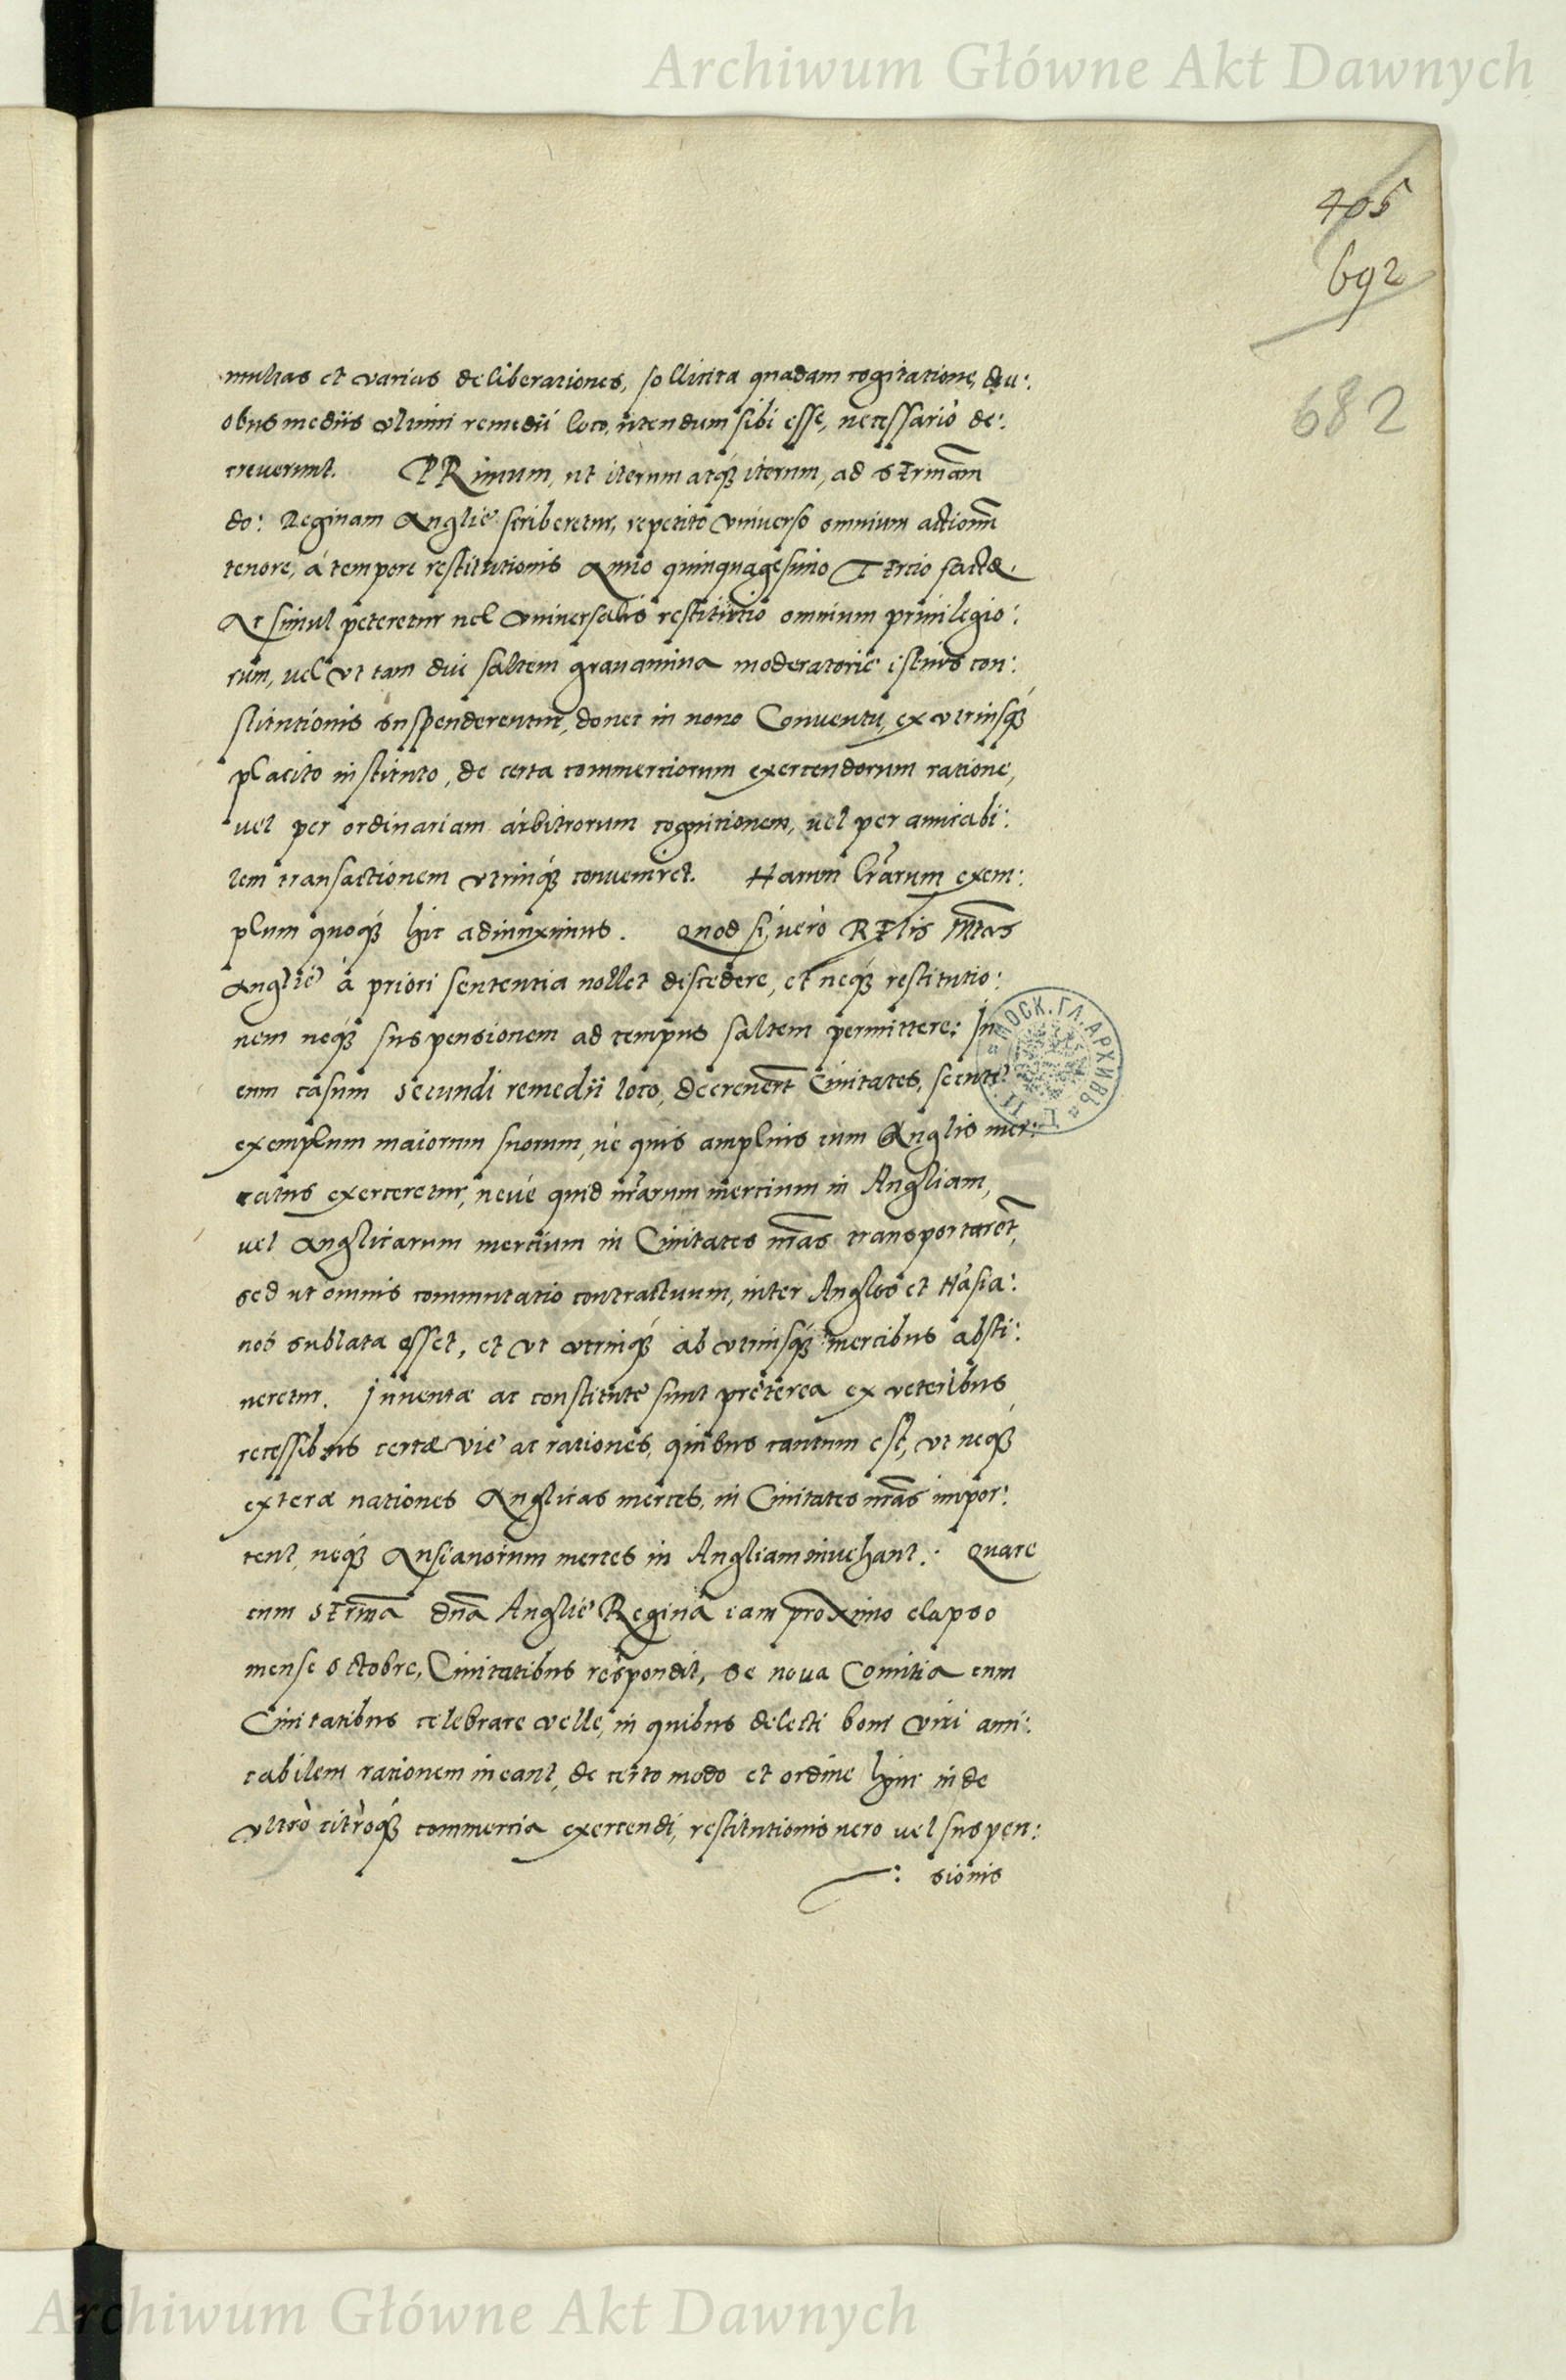 Archiwum Główne Akt Dawnych
405
692
682
multas et varias deliberationes, sollicita quadam cogitatione, du:
obus mediis ultimi remedii loco, utendum sibi esse, necessariò de:
creverunt. PRimum, ut iterum atq́ue iterum, ad sermam̃
do: Reginam Anglię scriberetur, repetito universo omnium actionũ
tenore, á tempore restitutionis Anno quinquagesimo Tertio factæ.
Ac simul peteretur uel vniuersalis restitutio omnium priuilegio:
rum, uel vt tam diu saltem grauamina moderatorię istius con:
stitutionis suspenderentur, donec in nouo Conuentu, ex vtriusq́
placito instituto, de certa commerciorum exercendorum ratione,
uel per ordinariam arbitrorum cognitionem, uel per amicabi:
lem transactionem vtrinq́ conueniret. Harum lr̃arum exem:
plum quoq́ hic adiunximus. Quod si uerò REgis Mtas
Anglię à priori sententia nollet discedere, et neq́ restitutio:
nem neq́ suspensionem ad tempus saltem permittere: In
eum casum secundi remedii loco, decreuert̃ Ciuitates, secutę
exemplum maiorum suorum, nè quis amplius cum Anglis mer:
catus exerceretur, neue quid nr̃arum mercium in Angliam,
uel Anglicarum mercium in Ciuitates nr̃as transportaret̃,
sed ut omnis commutatio contractuum, inter Anglos et Hãsia:
nos sublata esset, et vt vtrinq́ ab vtriusq́ mercibus absti:
neretur. Inuentæ ac constitutę sunt pręterea ex veteribus
recessibus certæ vię ac rationes, quibus cautum est, vt neq́
exteræ nationes Anglicas merces, in Ciuitates nr̃as impor:
tent, neq́ Ansianorum merces in Angliam inuehant. Quare
cum serma dna Anglię Regina iam proximo elapso
mense octobre, Ciuitatibus respondit, se noua Comitia cum
Ciuitatibus celebrare velle, in quibus delecti boni viri ami:
cabilem rationem ineant, de certo modo et ordine hinc inde
vltrò citròq́ commercia exercendi, restitutionis uero uel suspen:
sionis
МОСК. ГЛ. АРХИВЪ
Archiwum Główne Akt Dawnych